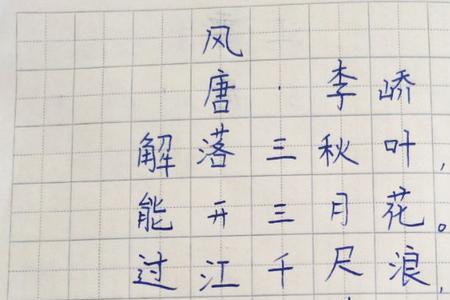 风
唐·李峤
解落三秋叶,
能开三月花。
过江千尺浪,